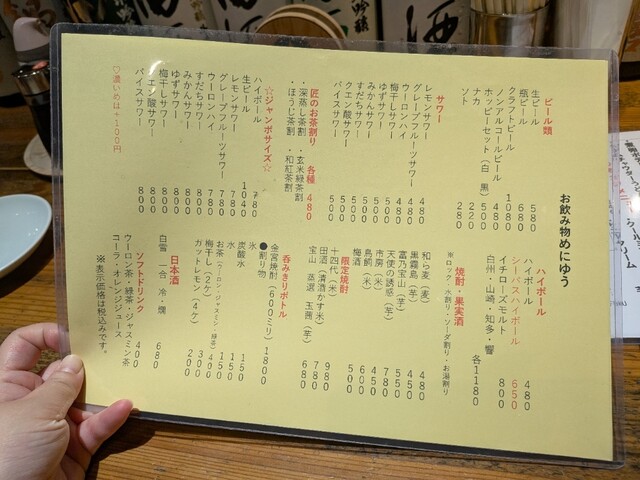 お飲み物めにゆう
ビール類
生ビール 580
瓶ビール
クラフトビール 1080
ノンアルコールビール 480
ホッピーセット（白 黒） 500
ナカ 220
ソト 280
サワー
レモンサワー 480
グレープフルーツサワー 480
ウーロンハイ 480
梅干しサワー 500
ゆずサワー 500
みかんサワー 500
すだちサワー 500
クエン酸サワー 500
バイスサワー 500
匠のお茶割り 各種 480
・深蒸し茶割 ・玄米緑茶割
・ほうじ茶割 ・和紅茶割
☆ジャンボサイズ☆
ハイボール 780
生ビール 1040
レモンサワー 780
グレープフルーツサワー 780
ウーロンハイ 780
すだちサワー 800
みかんサワー 800
ゆずサワー 800
梅干しサワー 800
クエン酸サワー 800
バイスサワー 800
♡濃いめは+100円
ハイボール
ハイボール 480
シーバスハイボール 650
イチローズモルト 800
白州・山崎・知多・響 各1180
焼酎・果実酒
※ロック・水割り・ソーダ割り・お湯割り
和ら麦（麦） 480
黒霧島（芋） 450
富乃宝山（芋） 550
天使の誘惑（芋） 780
市房（米） 450
鳥飼（米） 600
梅酒 500
限定焼酎
十四代（米） 980
田酒（清酒かす米） 780
宝山 蒸選 玉茜（芋） 680
呑みきりボトル
金宮焼酎（600ミリ） 1800
●割り物
氷 150
炭酸水 150
水 150
お茶（ウーロン・ジャスミン・緑茶） 400
梅干し（2ケ） 300
カットレモン（4ケ） 200
日本酒
白雪 一合 冷・燗 680
ソフトドリンク
ウーロン茶・緑茶・ジャスミン茶 400
コーラ・オレンジジュース
※表示価格は税込みです。